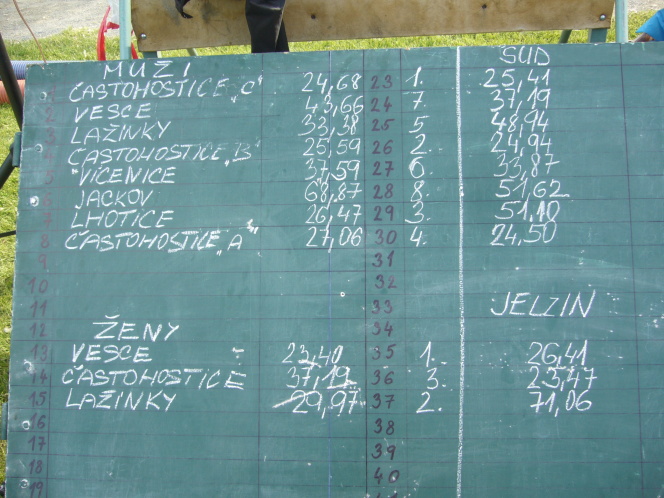 MUŽI SUD
1 ČASTOHOSTICE „C“ 24,68 23 1. 25,41
2 VESCE 43,66 24 7. 37,19
3 LAŽINKY 33,38 25 5. 48,94
4 ČASTOHOSTICE „B“ 25,59 26 2. 24,94
5 VÍCENICE 37,59 27 6. 33,87
6 JACKOV 68,87 28 8. 51,62
7 LHOTICE 26,47 29 3. 51,10
8 ČASTOHOSTICE „A“ 27,06 30 4. 24,50
9 31
10 32
11 33 JELZIN
12 ŽENY 34
13 VESCE 23,40 35 1. 26,41
14 ČASTOHOSTICE 37,19 36 3. 23,47
15 LAŽINKY 29,97 37 2. 71,06
16 38
17 39
18 40
19